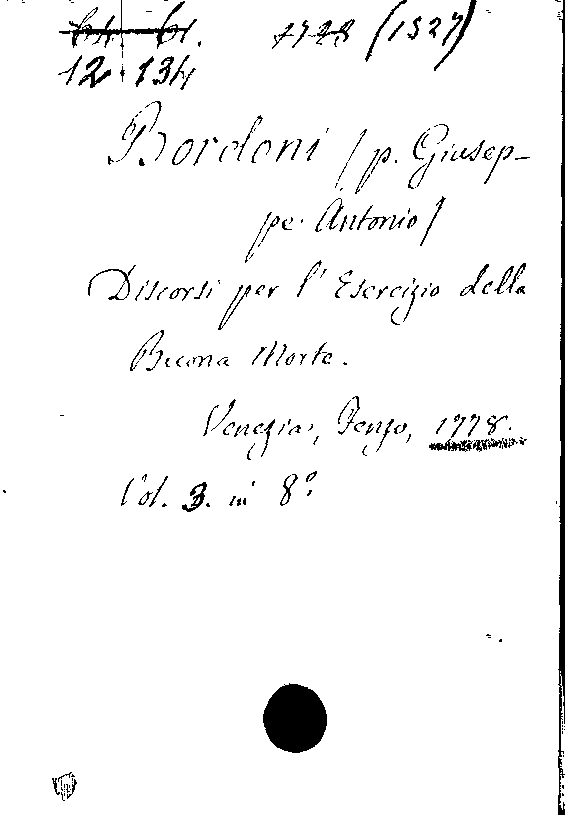 1778 (1527)
12. 134
Bordoni / p. Giusep-
pe Antonio /
Discorsi per l' Esercizio della
Buona Morte.
Venezia, Fenzo, 1778.
Vol. 3. in 8º